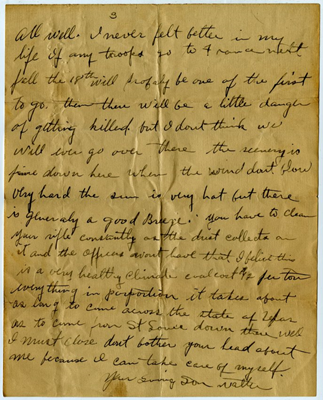 3
all well. I never felt better in my
life if any troops go to France next
fall the 18th will probaly be one of the first
to go. then there will be a little danger
of gitting killed but I dont think we
will ever go over there the scenery is
fine down here when the wind dont blow
very hard the sun is very hot but there
is generaly a good Breeze. you have to clean
your rifle constantly as the dust collects on
it and the officers wont have that I belief this
is a very healthy climate coal cost per ton
everything in purportion it takes about
as long to come across the state of Texas
as to come from St Louis down there well
I must close dont bother your head about
me because I can take care of myself.
Your loving Son Walter